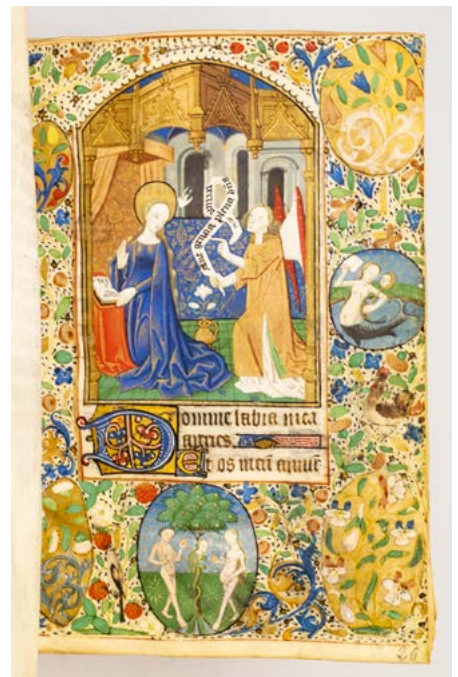 Aue gracia plena dns
Domine labia mea
aperies.
Et os meū annūt
26